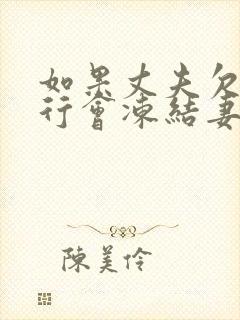 如果丈夫欠
行會凍結妻
陳美伶